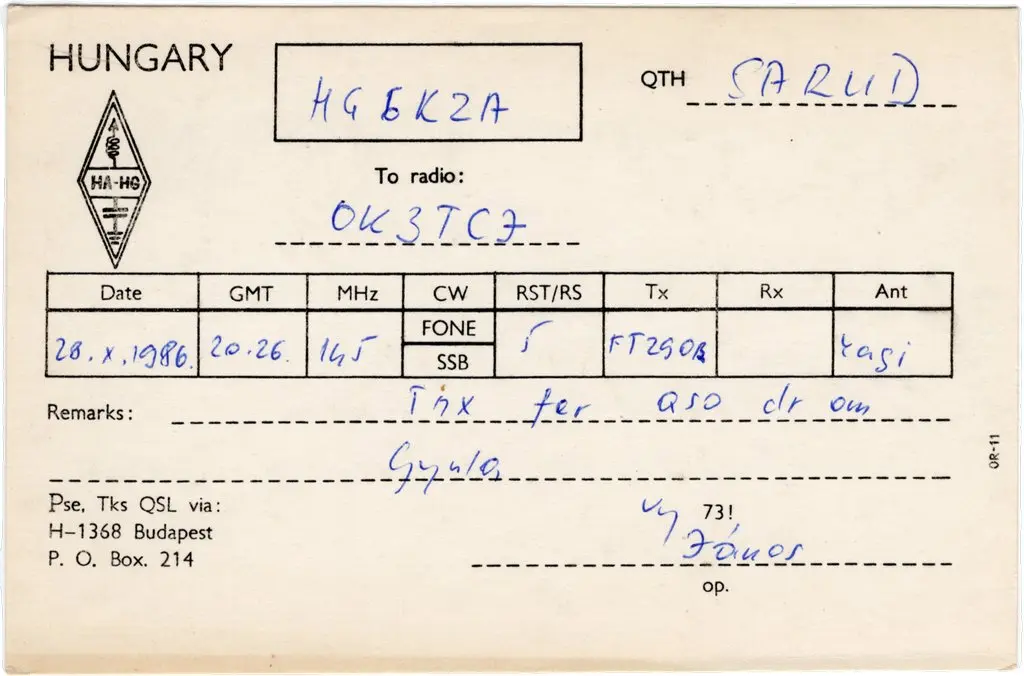 HUNGARY
HG6KZA
QTH SARUD
HA-HG
To radio:
OK3TCJ
Date GMT MHz CW RST/RS Tx Rx Ant
FONE
28.X.1986. 20.26. 145 5 FT290R Yagi
SSB
Remarks: Tnx fer QSO dr om
Gyula
OR-11
Pse, Tks QSL via:
H-1368 Budapest
P. O. Box. 214
vy 73!
János
op.